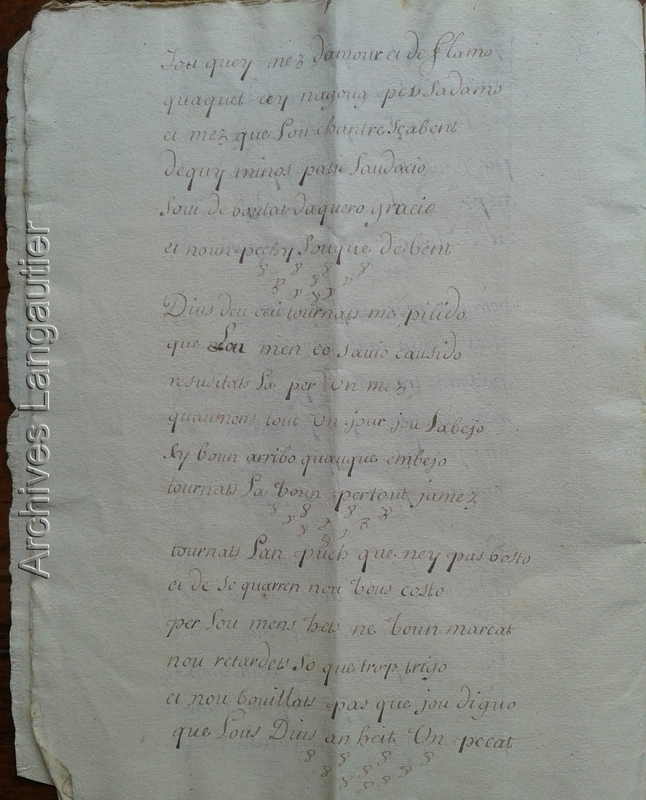 Jou quey mez damour ei de flamo
quaquet cey nagoug per Sadamo
ei mez que Lou chantre Sçabent
dequy minos patic Laudacio
Soui de boutat daquero gracio
ei noun pechy Louque de bent
Dius deu ceu tournats me pilido
que Lou men co Sauio causido
resusitats La per Un mez
quaumens tout Un jour jou Labejo
Sy boun arribo quauque embejo
tournats La boun pertout jamez
tournats Lan puch que ney pas bosto
ei de So quarren nou bous costo
per Lou mens heis ne boun marcat
nou retardets So que trop trigo
ei nou bouillats pas que jou diguo
que Lous Dius an heit Un pecat
Archives Langautier